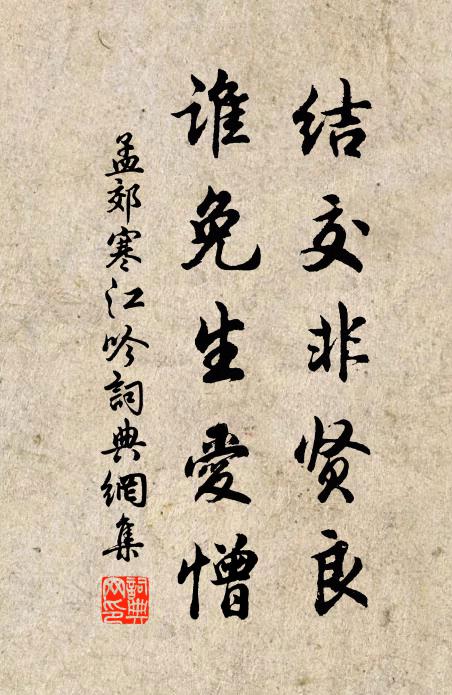 结交非贤良
谁免生爱憎
孟郊寒江吟词典網集
詞典网印